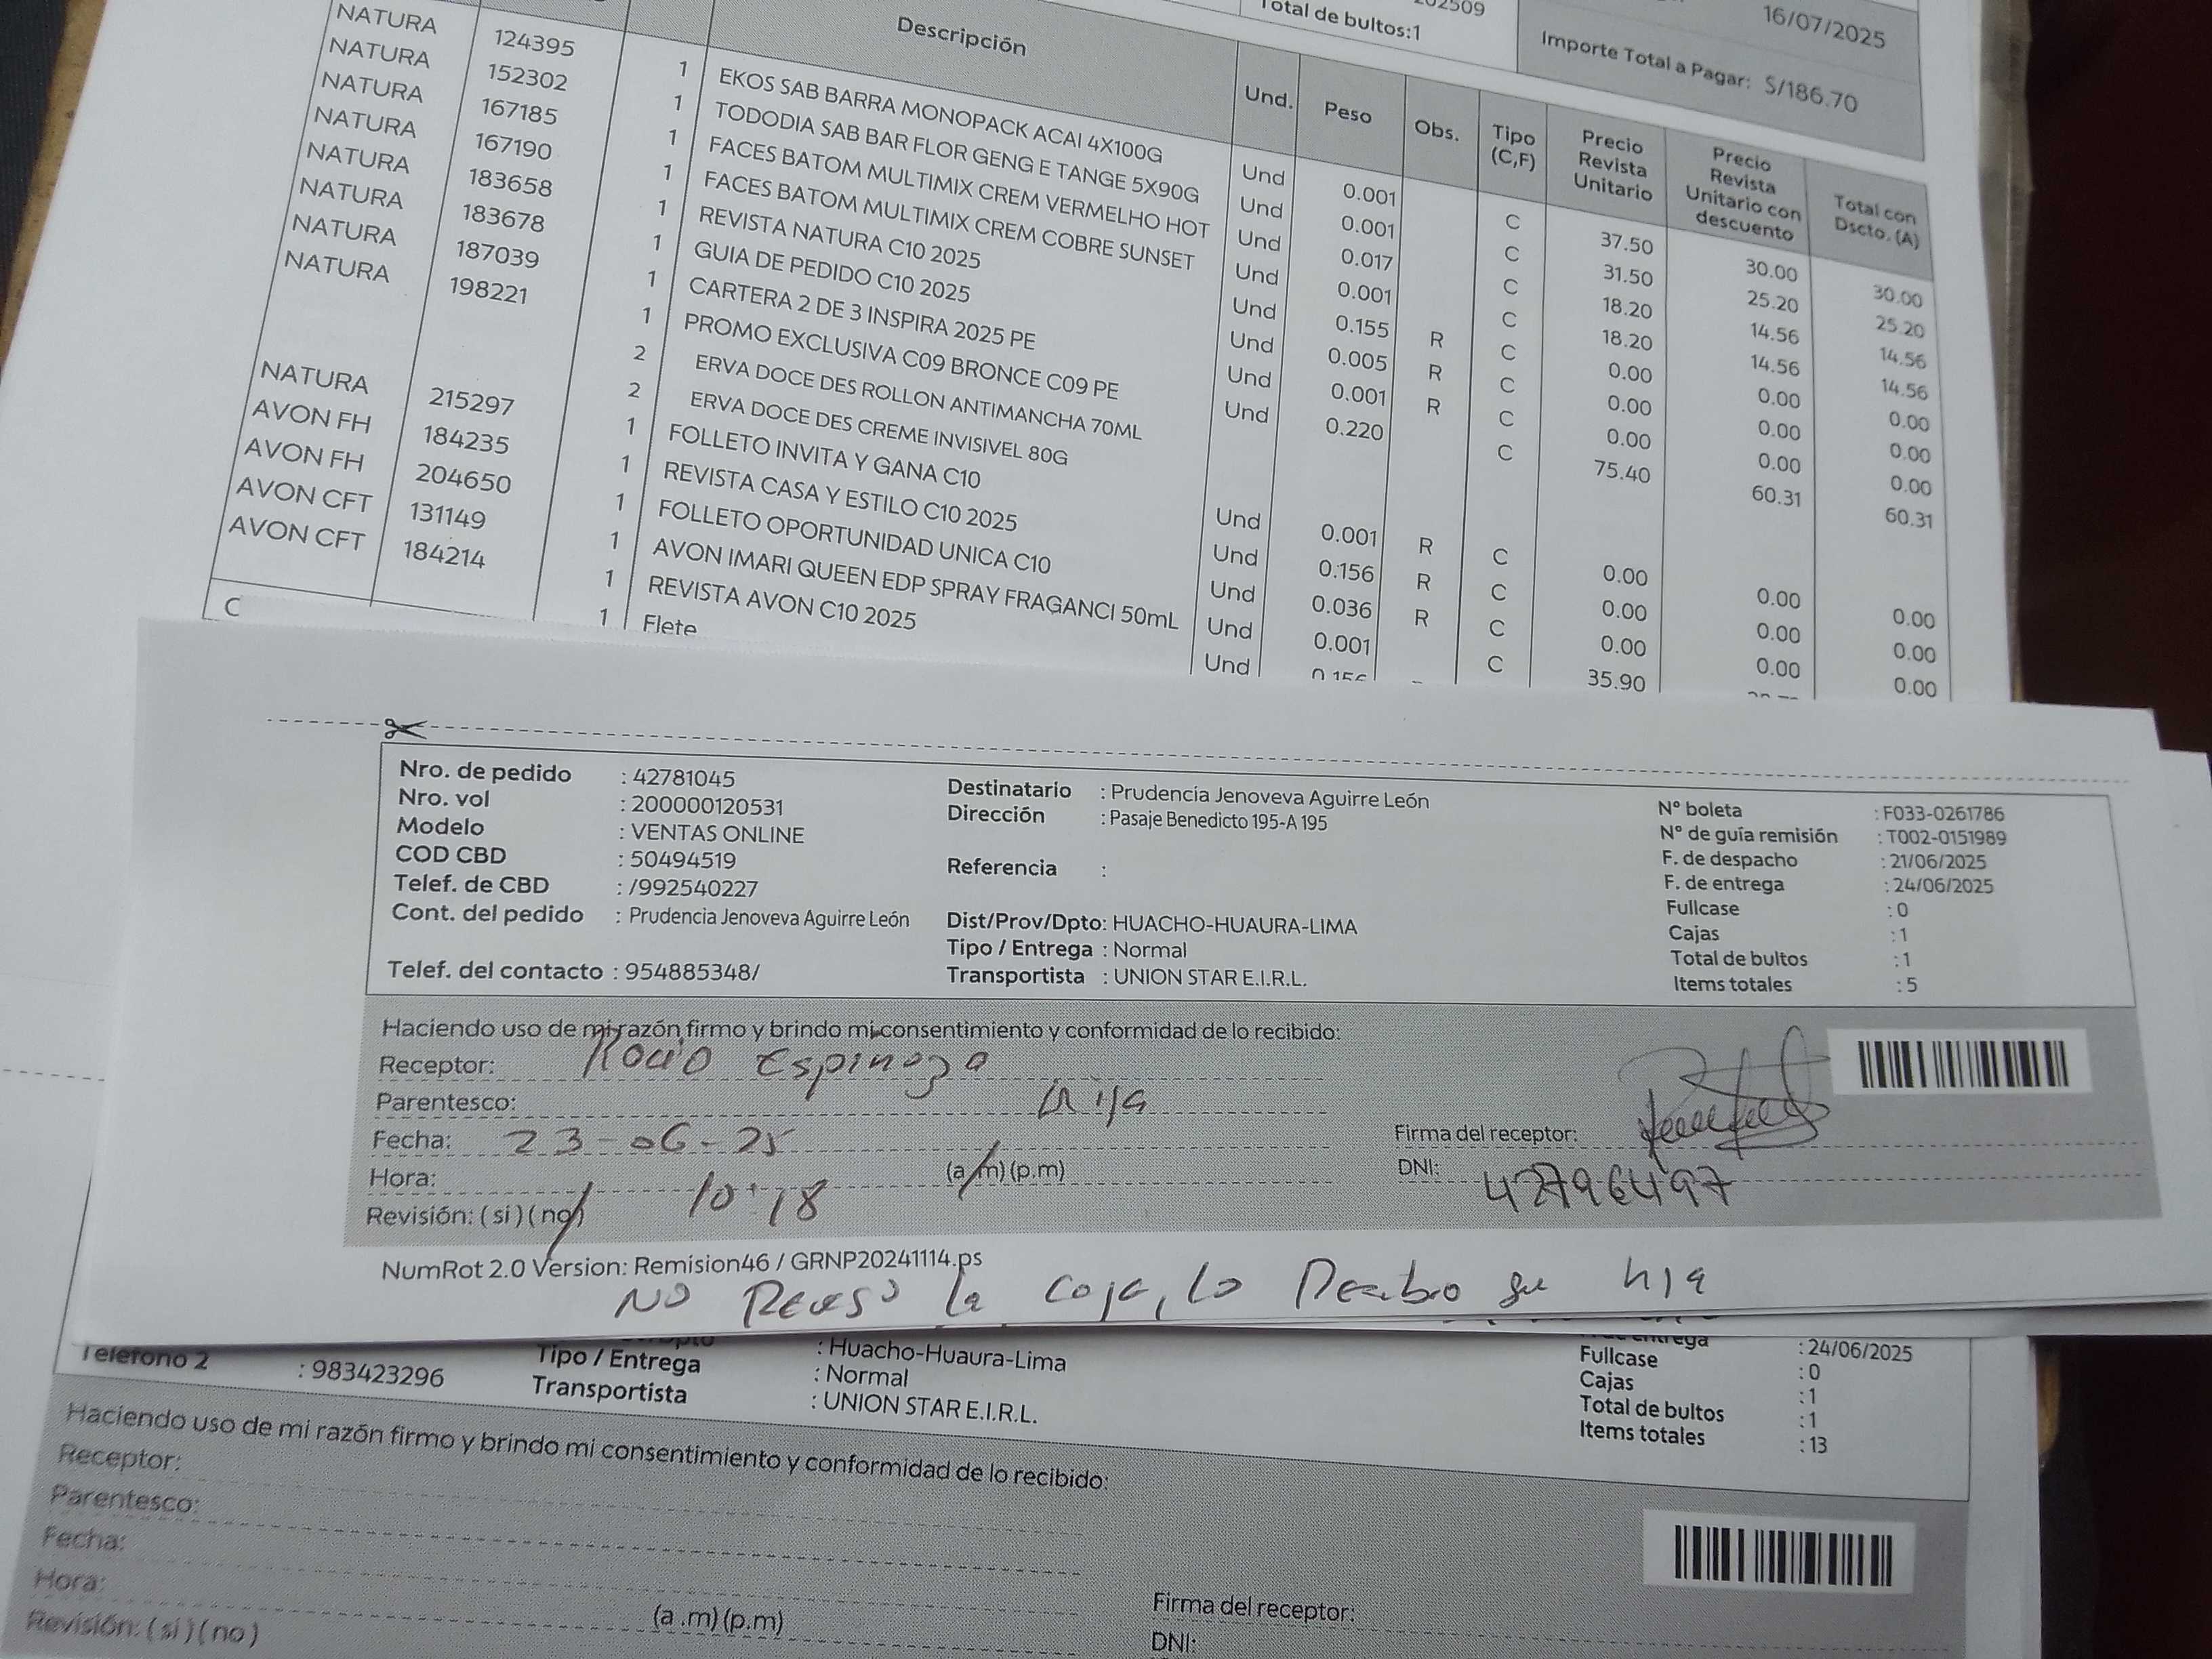 202509
Total de bultos:1
16/07/2025
Importe Total a Pagar: S/186.70
Descripción Und. Peso Obs. Tipo (C,F) Precio Revista Unitario Precio Revista Unitario con descuento Total con Dscto. (A)
NATURA 124395 1 EKOS SAB BARRA MONOPACK ACAI 4X100G Und 0.001 C 37.50 30.00 30.00
NATURA 152302 1 TODODIA SAB BAR FLOR GENG E TANGE 5X90G Und 0.001 C 31.50 25.20 25.20
NATURA 167185 1 FACES BATOM MULTIMIX CREM VERMELHO HOT Und 0.017 C 18.20 14.56 14.56
NATURA 167190 1 FACES BATOM MULTIMIX CREM COBRE SUNSET Und 0.001 C 18.20 14.56 14.56
NATURA 183658 1 REVISTA NATURA C10 2025 Und 0.155 R C 0.00 0.00 0.00
NATURA 183678 1 GUIA DE PEDIDO C10 2025 Und 0.005 R C 0.00 0.00 0.00
NATURA 187039 1 CARTERA 2 DE 3 INSPIRA 2025 PE Und 0.001 R C 0.00 0.00 0.00
NATURA 198221 1 PROMO EXCLUSIVA C09 BRONCE C09 PE Und 0.220 C 75.40 60.31 60.31
2 ERVA DOCE DES ROLLON ANTIMANCHA 70ML
2 ERVA DOCE DES CREME INVISIVEL 80G
NATURA 215297 1 FOLLETO INVITA Y GANA C10 Und 0.001 R C 0.00 0.00 0.00
AVON FH 184235 1 REVISTA CASA Y ESTILO C10 2025 Und 0.156 R C 0.00 0.00 0.00
AVON FH 204650 1 FOLLETO OPORTUNIDAD UNICA C10 Und 0.036 R C 0.00 0.00 0.00
AVON CFT 131149 1 AVON IMARI QUEEN EDP SPRAY FRAGANCI 50mL Und 0.001 C 35.90
AVON CFT 184214 1 REVISTA AVON C10 2025 Und 0.156
C 1 Flete
Nro. de pedido : 42781045
Nro. vol : 200000120531
Modelo : VENTAS ONLINE
COD CBD : 50494519
Telef. de CBD : /992540227
Cont. del pedido : Prudencia Jenoveva Aguirre León
Telef. del contacto : 954885348/
Destinatario : Prudencia Jenoveva Aguirre León
Dirección : Pasaje Benedicto 195-A 195
Referencia :
Dist/Prov/Dpto: HUACHO-HUAURA-LIMA
Tipo / Entrega : Normal
Transportista : UNION STAR E.I.R.L.
N° boleta : F033-0261786
N° de guía remisión : T002-0151989
F. de despacho : 21/06/2025
F. de entrega : 24/06/2025
Fullcase : 0
Cajas : 1
Total de bultos : 1
Items totales : 5
Haciendo uso de mi razón firmo y brindo mi consentimiento y conformidad de lo recibido:
Receptor: Rocio Espinoza
Parentesco: hija
Fecha: 23-06-25
Hora: 10:18 (a.m) (p.m)
Revisión: (si) (no)
Firma del receptor:
DNI: 42796497
NumRot 2.0 Version: Remision46 / GRNP20241114.ps
NO Reviso la caja, lo Recibio su hija
Telefono 2 : 983423296
: Huacho-Huaura-Lima
Tipo / Entrega : Normal
Transportista : UNION STAR E.I.R.L.
entrega : 24/06/2025
Fullcase : 0
Cajas : 1
Total de bultos : 1
Items totales : 13
Haciendo uso de mi razón firmo y brindo mi consentimiento y conformidad de lo recibido:
Receptor:
Parentesco:
Fecha:
Hora: (a .m) (p.m)
Revisión: (si) (no)
Firma del receptor:
DNI: